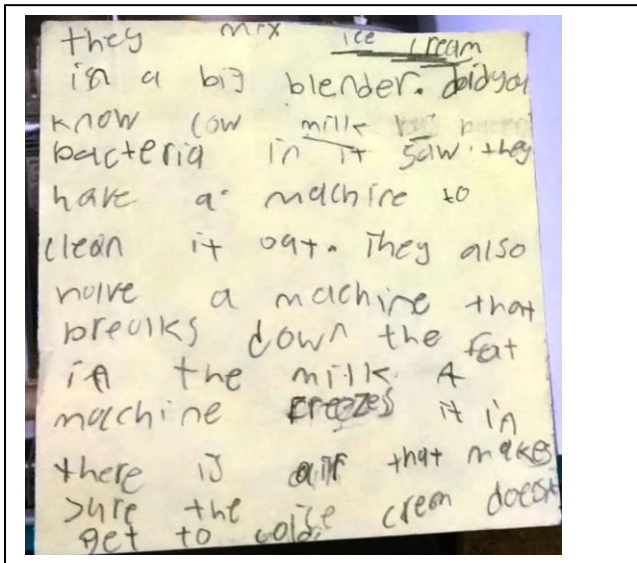 they mix ice cream
in a big blender. did you
know cow milk has
bacteria in it saw. they
have a machine to
clean it oat. They also
have a machine that
breaks down the fat
in the milk. A
machine freezes it in
there is air that makes
sure the ice cream doesn't
get to cold.